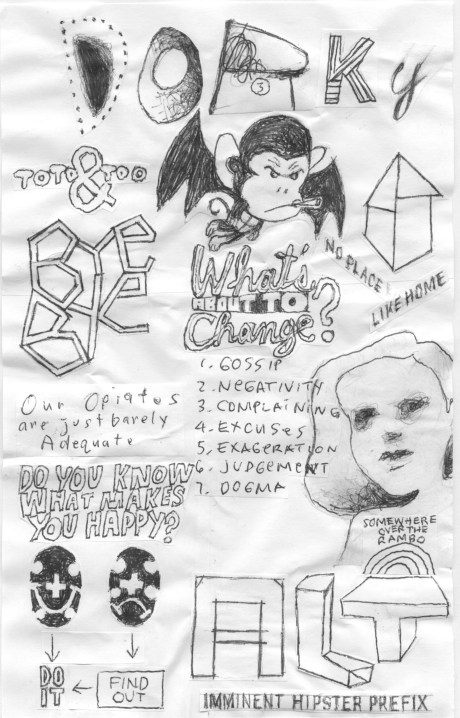 DORKY
3
TOTO & TOO
BYE
BYE
What's
ABOUT TO
Change?
NO PLACE
LIKE HOME
1. GOSSIP
2. NEGATIVITY
3. COMPLAINING
4. EXCUSES
5. EXAGERATION
6. JUDGEMENT
7. DOGMA
Our Opiates
are just barely
Adequate
DO YOU KNOW
WHAT MAKES
YOU HAPPY?
DO
IT
FIND
OUT
SOMEWHERE
OVER THE
RAMBO
ALT
IMMINENT HIPSTER PREFIX